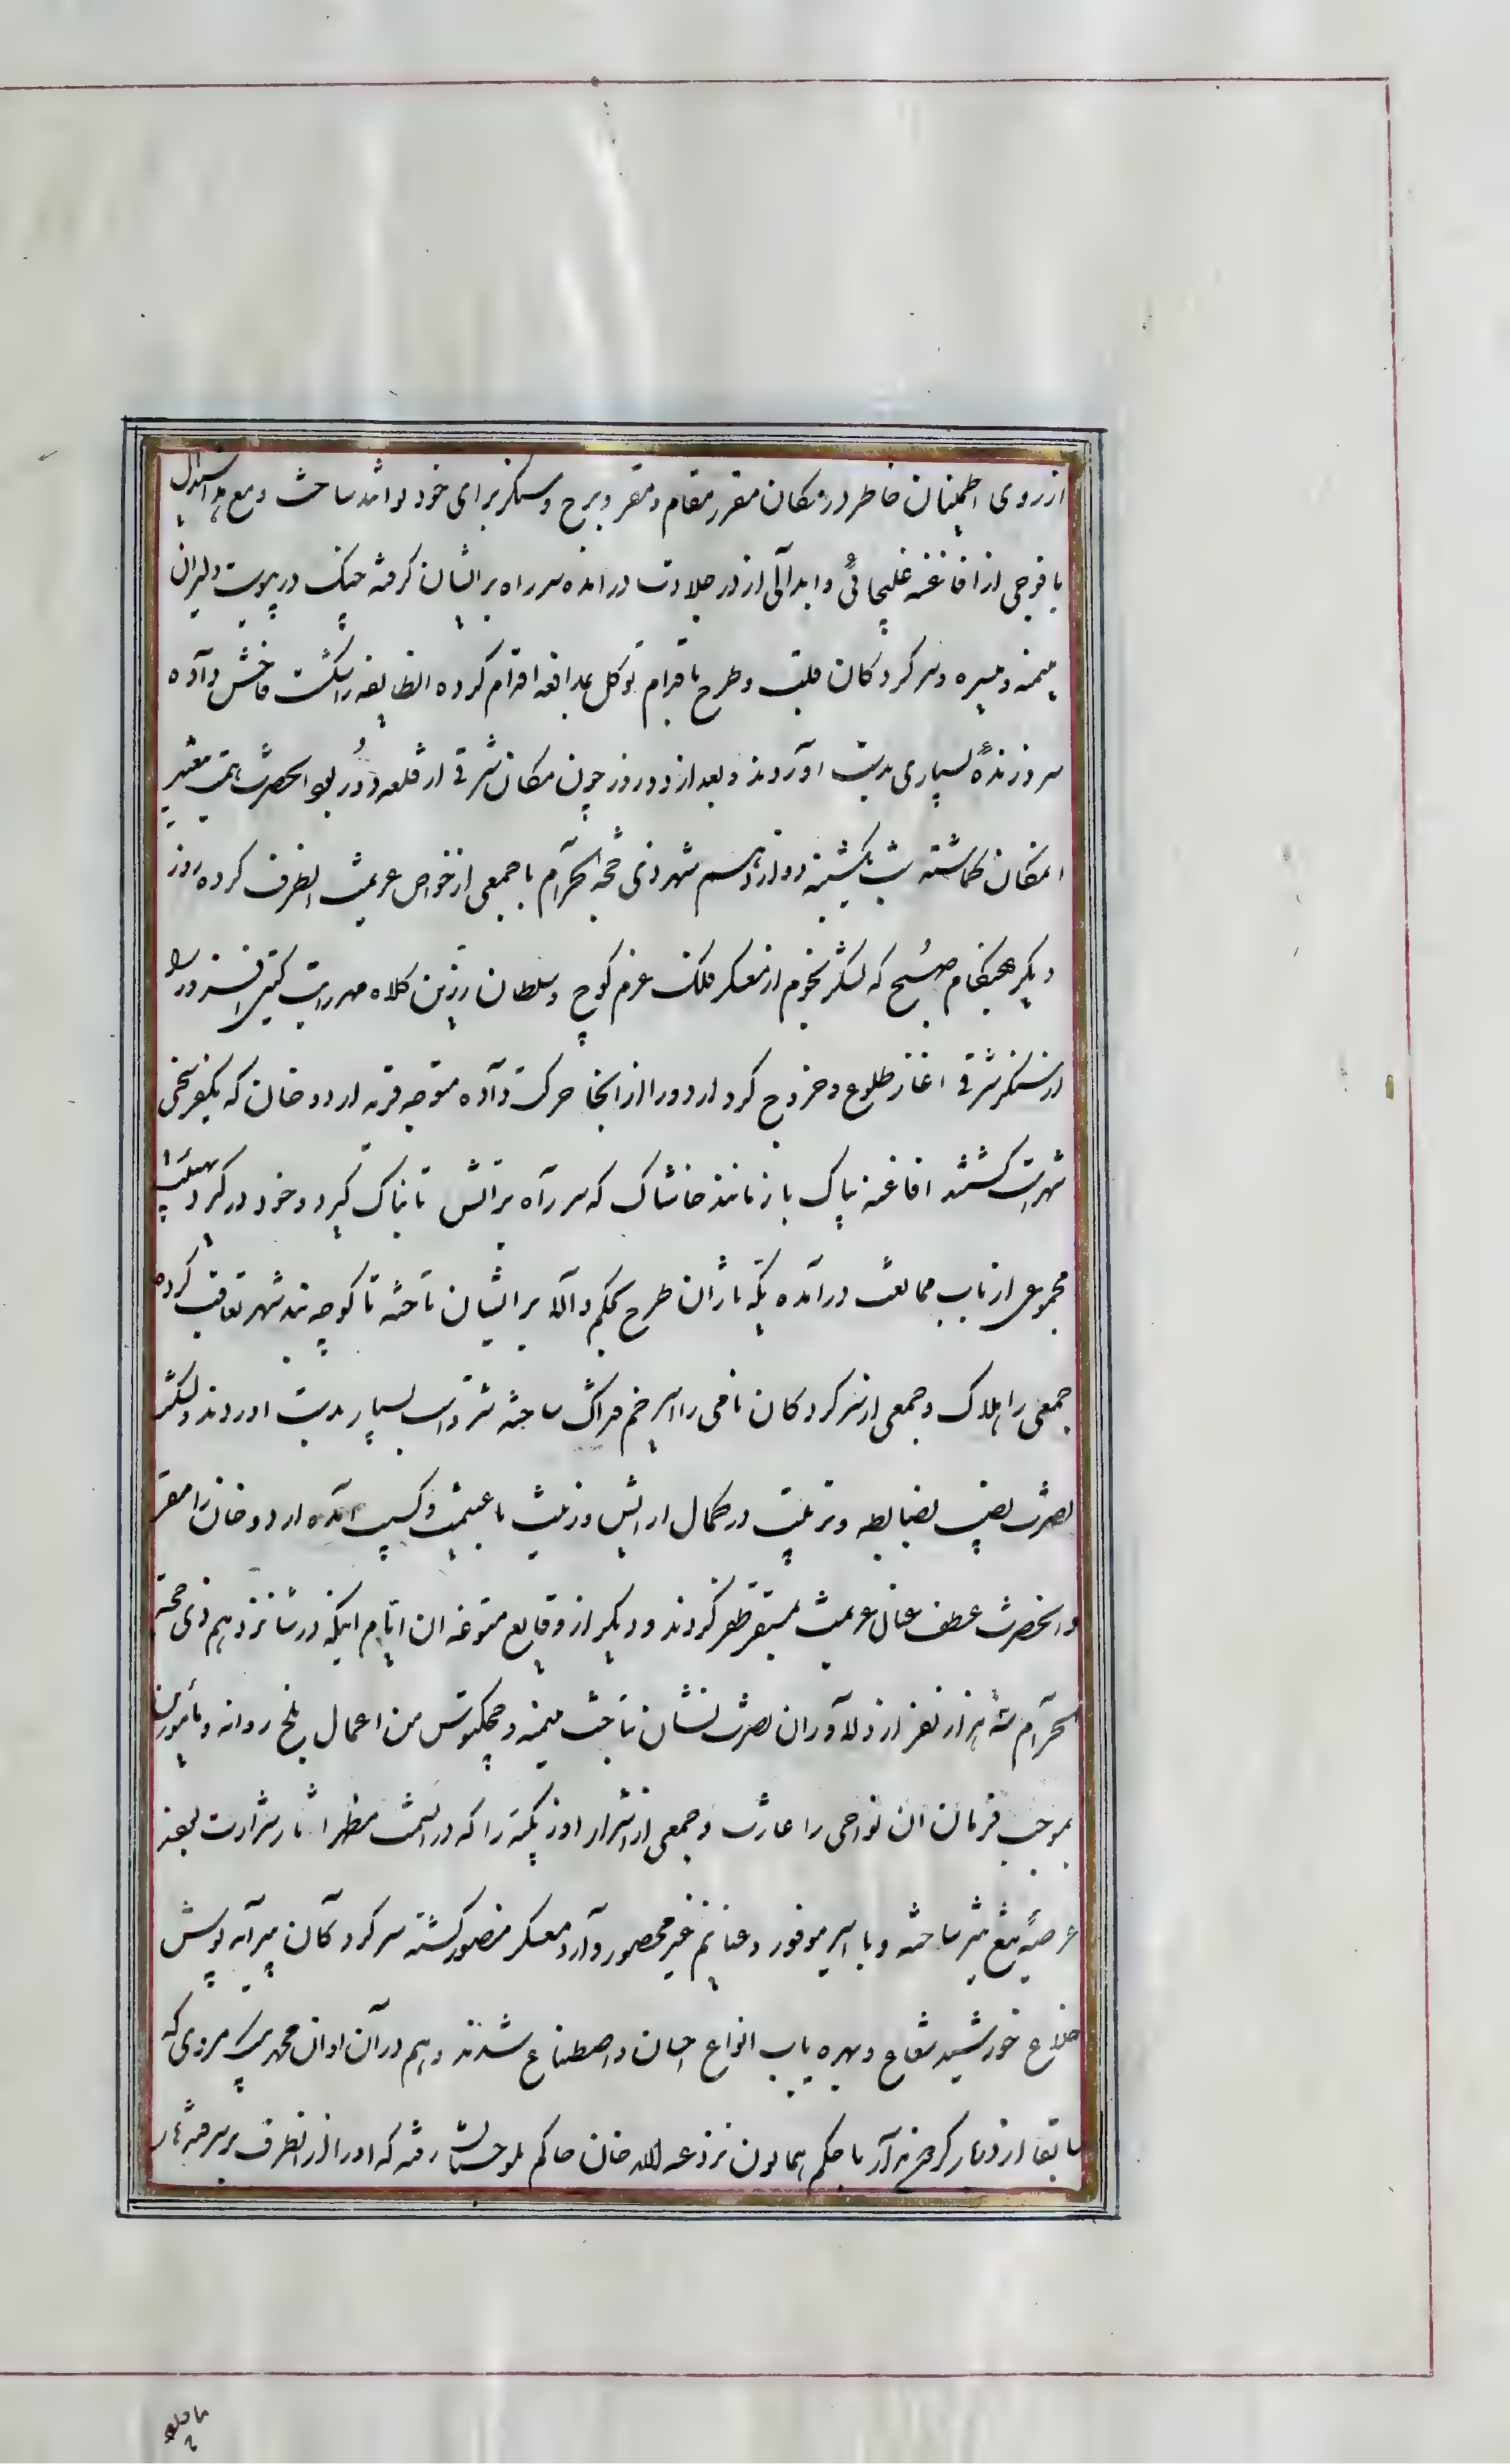 از روی اطمینان خاطر در مکان مقرر مقام و مقر و برج و سنکر برای خود توانند ساخت و مع هذا سیدال
با فوجی از افاغنه غلیجائی و ابدالی از در جلادت درامده سر راه بر ایشان کرفته جنک در پیوست دلیران
میمنه و میسره و سر کردکان قلب و طرح باقدام توکل بمدافعه اقدام کرده انطایفه را شکست فاحش داده
سر و زندهٔ بسیاری بدست اوردند و بعد از دو روز چون مکان شرقی از قلعه دور بود انحضرت همت بتغییر
انمکان کماشته شب یکشنبه دوازدهم شهر ذی حجة الحرام با جمعی از خواص عزیمت انطرف کرده روز
دیکر هنکام صبح که لشکر نجوم از معسکر فلک عزم کوچ و سلطان زرین کلاه مهر رایت کیتی افروز را
از سنکر شرقی اغاز طلوع و خروج کرد اردو را از انجا حرکت داده متوجه قریه اردو خان که بیکفرسخی
شهر است کشتند افاغنه بیاک باز مانند خاشاک که سر راه بر اتش تابناک کیرد و خود درکیرد بهیئت
مجموعی از باب ممانعت درامده یکه تازان طرح بحکم والا بر ایشان تاخته تا کوچه بند شهر تعاقب کرده
جمعی را هلاک و جمعی از سرکردکان نامی را اسیر خم فتراک ساخته شتر و اسب بسیار بدست اوردند و لشکر
نصرت نصیب بضابطه و ترتیب در کمال ارایش و زینت با غنیمت و کسیب امده اردو خان را مقر
و انحضرت عطف عنان عزیمت بمستقر ظفر کردند و دیکر از وقایع متنوعه ان ایام اینکه در شانزدهم ذی حجة
الحرام سه هزار نفر از دلاوران نصرت نشان بتاخت میمنه و چچکتو من اعمال بلخ روانه و مامورین
بموجب فرمان ان نواحی را غارت و جمعی از اشرار اوزبکیه را که در انسمت مظهر اثار شرارت بودند
عرصهٔ تیغ تیز ساخته و با اسیر موفور و غنایم غیر محصور وارد معسکر منصور کشته سرکردکان پیرایه پوش
خلاع خورشید شعاع و بهره یاب انواع احسان و اصطناع شدند و هم در آن اوان محمد بیک مروی که
سابقا از دیار کرفخ نزار با حکم همایون نزد عبد الله خان حاکم بلوچستان رفته که او را از انطرف بر سر قندهار